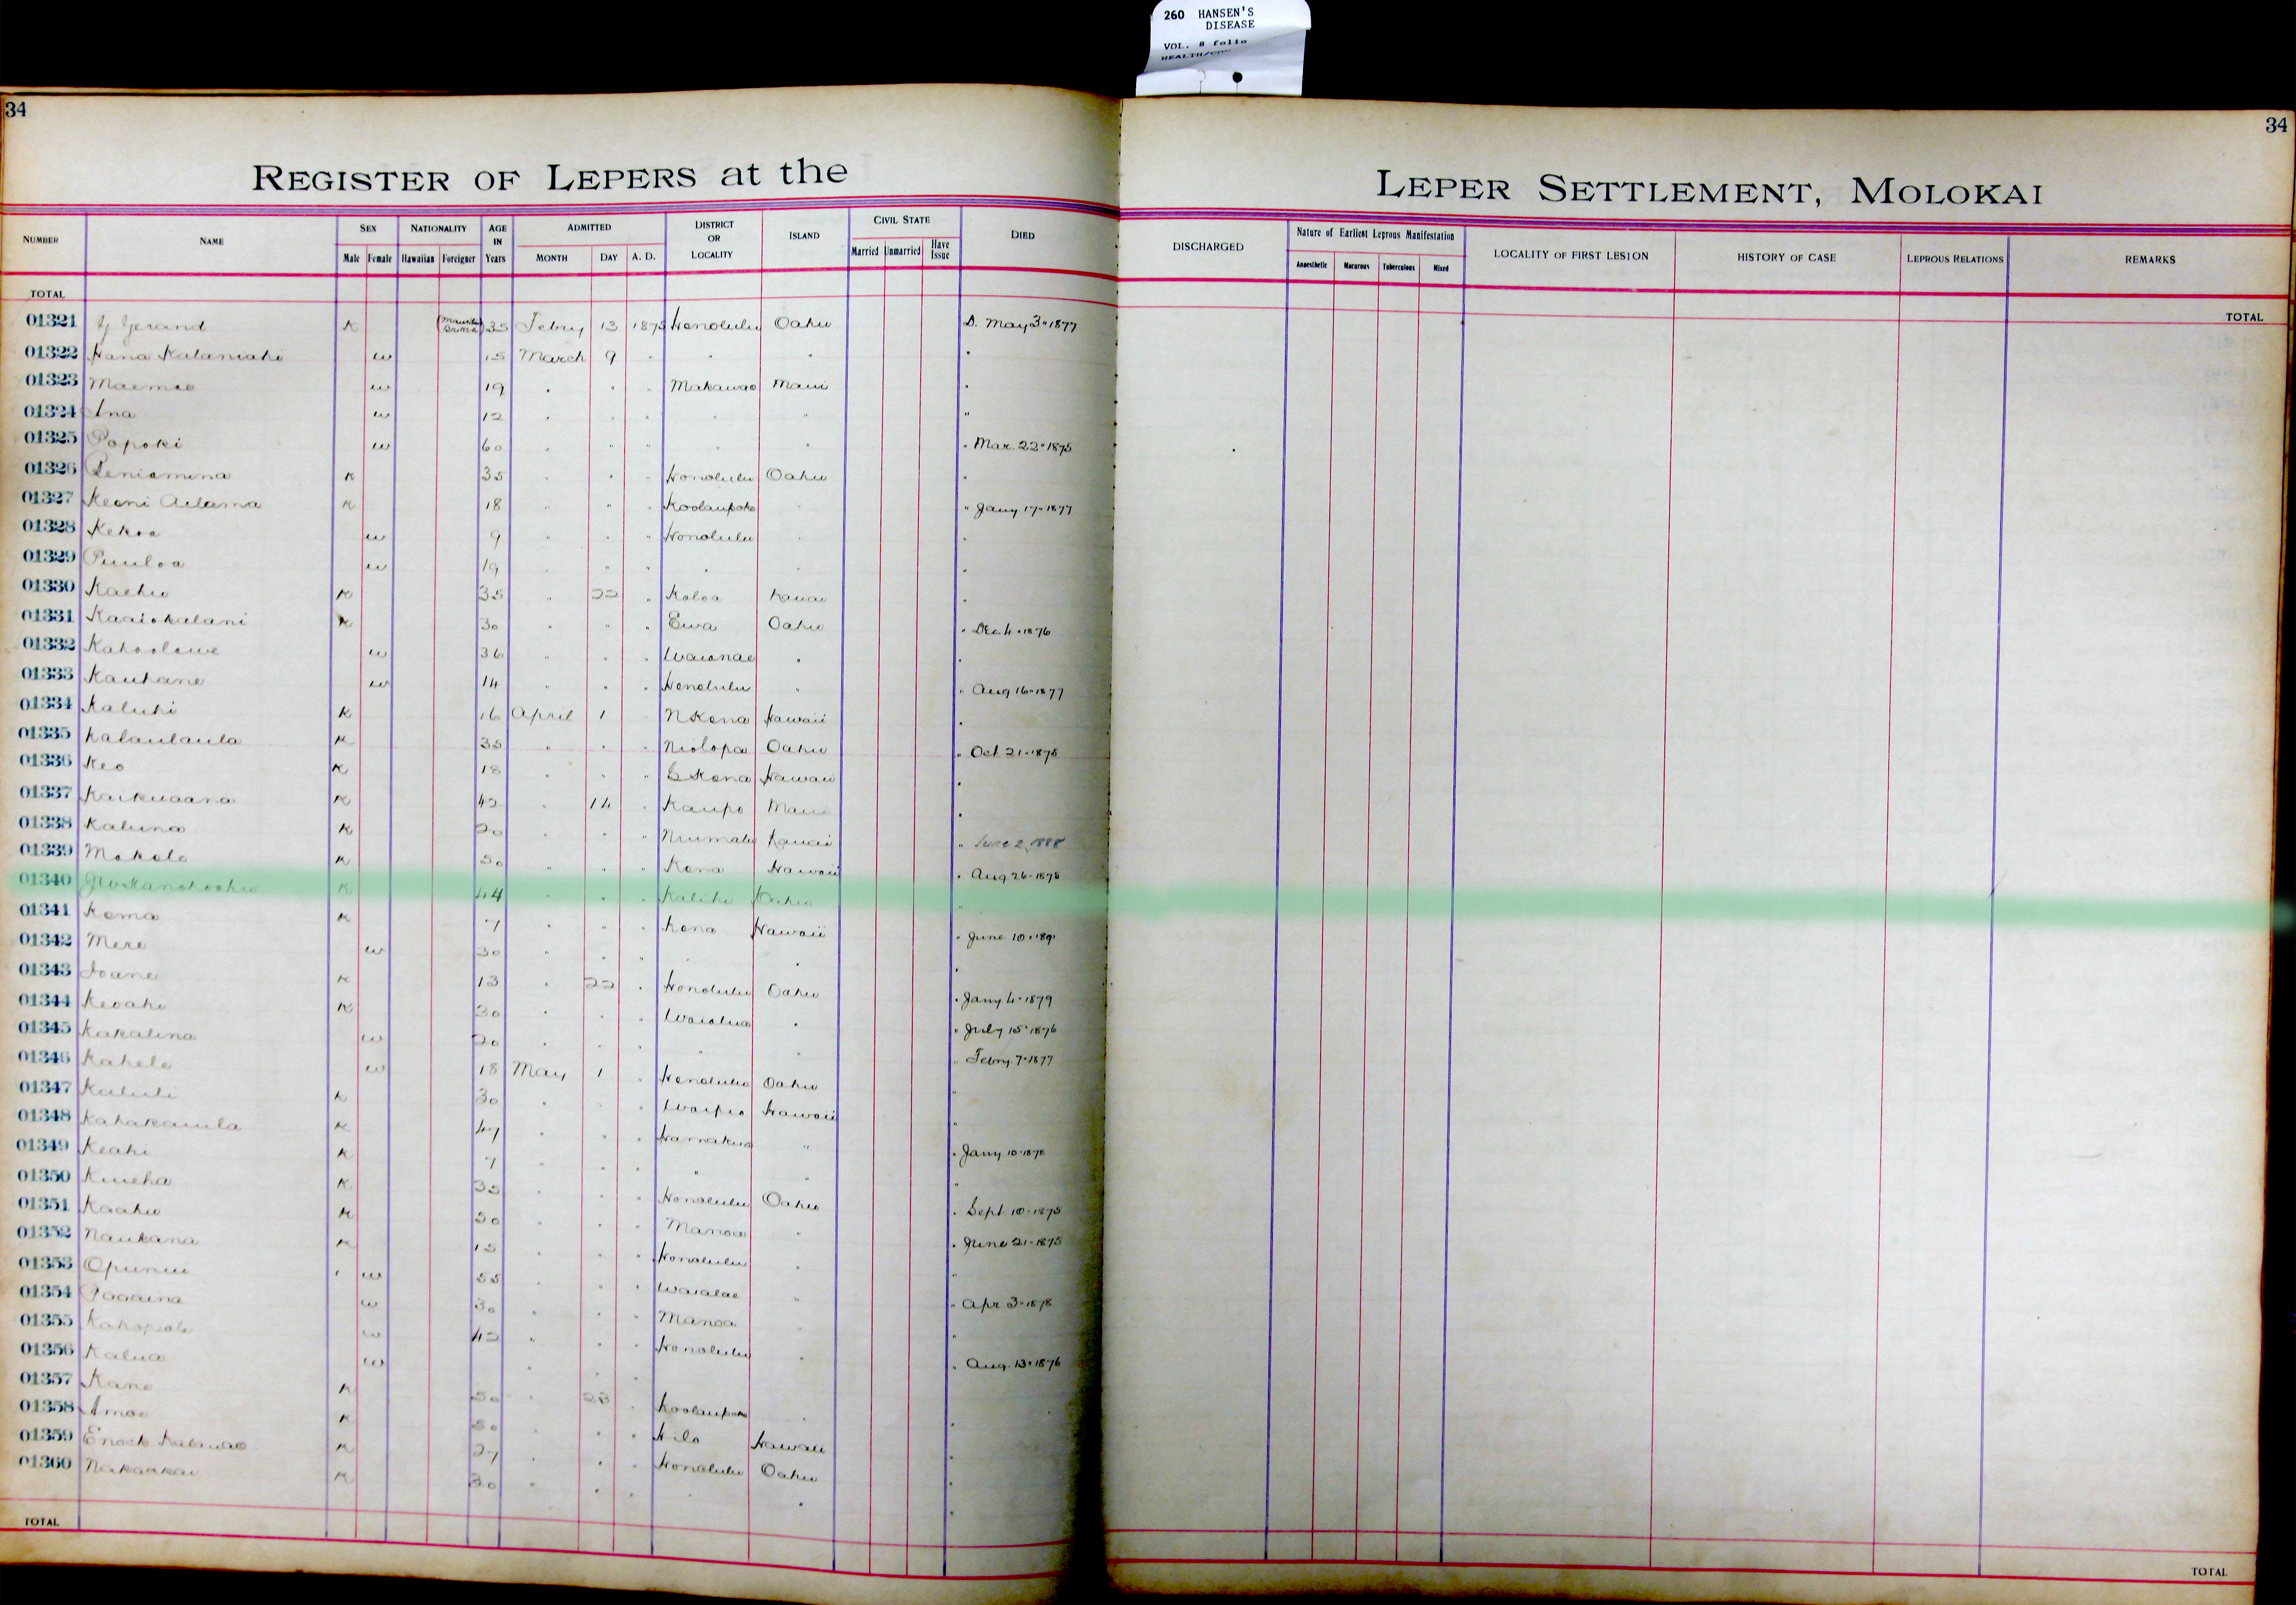 260 HANSEN'S
DISEASE
VOL. 8 folio
34
34
REGISTER OF LEPERS at the
LEPER SETTLEMENT, MOLOKAI
NUMBER NAME SEX NATIONALITY AGE IN Years ADMITTED DISTRICT OR LOCALITY ISLAND CIVIL STATE DIED
Male Female Hawaiian Foreigner MONTH DAY A. D. Married Unmarried Have Issue
DISCHARGED Nature of Earliest Leprous Manifestation LOCALITY OF FIRST LESION HISTORY OF CASE LEPROUS RELATIONS REMARKS
Anaesthetic Macurous Tuberculous Mixed
TOTAL
TOTAL
01321 K 35 Febry 13 1875 Honolulu Oahu D. May 3" 1877
01322 Hana Kalaniahi w 15 March 9 " " " "
01323 Maemae w 19 " " " Makawao Maui "
01324 Ana w 12 " " " " " "
01325 Popoki w 60 " " " " " " Mar. 22" 1875
01326 Peniamina K 35 " " " Honolulu Oahu "
01327 Keoni Adama K 18 " " " Koolaupoko " " Jany 17" 1877
01328 Kekoa w 9 " " " Honolulu " "
01329 Puuloa w 19 " " " " " "
01330 Kaehu K 35 " 22 " Koloa Kauai "
01331 Kaaiokalani K 30 " " " Ewa Oahu " Dec 4" 1876
01332 Kahoolawe w 36 " " " Waianae " "
01333 Kauhane w 14 " " " Honolulu " " Aug 16" 1877
01334 Kaluhi K 16 April 1 " N Kona Hawaii "
01335 Kalaulaula K 35 " " " Niolopa Oahu " Oct 21" 1878
01336 Keo K 18 " " " S Kona Hawaii "
01337 Kaikuaana K 42 " 14 " Kaupo Maui "
01338 Kaluna K 20 " " " Niumalu Kauai " June 2, 1888
01339 Mokole K 50 " " " Kona Hawaii " Aug 26" 1878
01340 K 44 " " " Kalihi Oahu "
01341 Kema K 7 " " " Kona Hawaii " June 10" 1891
01342 Mere w 30 " " " " " "
01343 Ioane K 13 " 22 " Honolulu Oahu " Jany 4" 1879
01344 Keoahi K 30 " " " Waialua " " July 15" 1876
01345 Kakalina w 20 " " " " " " Febry. 7" 1877
01346 Kahele w 18 May 1 " Honolulu Oahu "
01347 Kaluli K 30 " " " Waipio Hawaii "
01348 Kahakauila K 47 " " " Hamakua " " Jany 10" 1878
01349 Keahi K 7 " " " " " "
01350 Kiueha K 35 " " " Honolulu Oahu " Sept 10" 1875
01351 Kaahu K 50 " " " Manoa " " June 21" 1875
01352 Naukana K 15 " " " Honolulu " "
01353 Opunui w 55 " " " Waialae " " Apr 3" 1878
01354 w 30 " " " Manoa " "
01355 w 42 " " " Honolulu " " Aug. 13" 1876
01356 Kalua w " " "
01357 Kane K 50 " 23 " Koolaupoko " "
01358 Amoe K 50 " " " Hilo Hawaii "
01359 Enoch Kalauao K 27 " " " Honolulu Oahu "
01360 Nakaakai K 30 " " " " " "
TOTAL
TOTAL